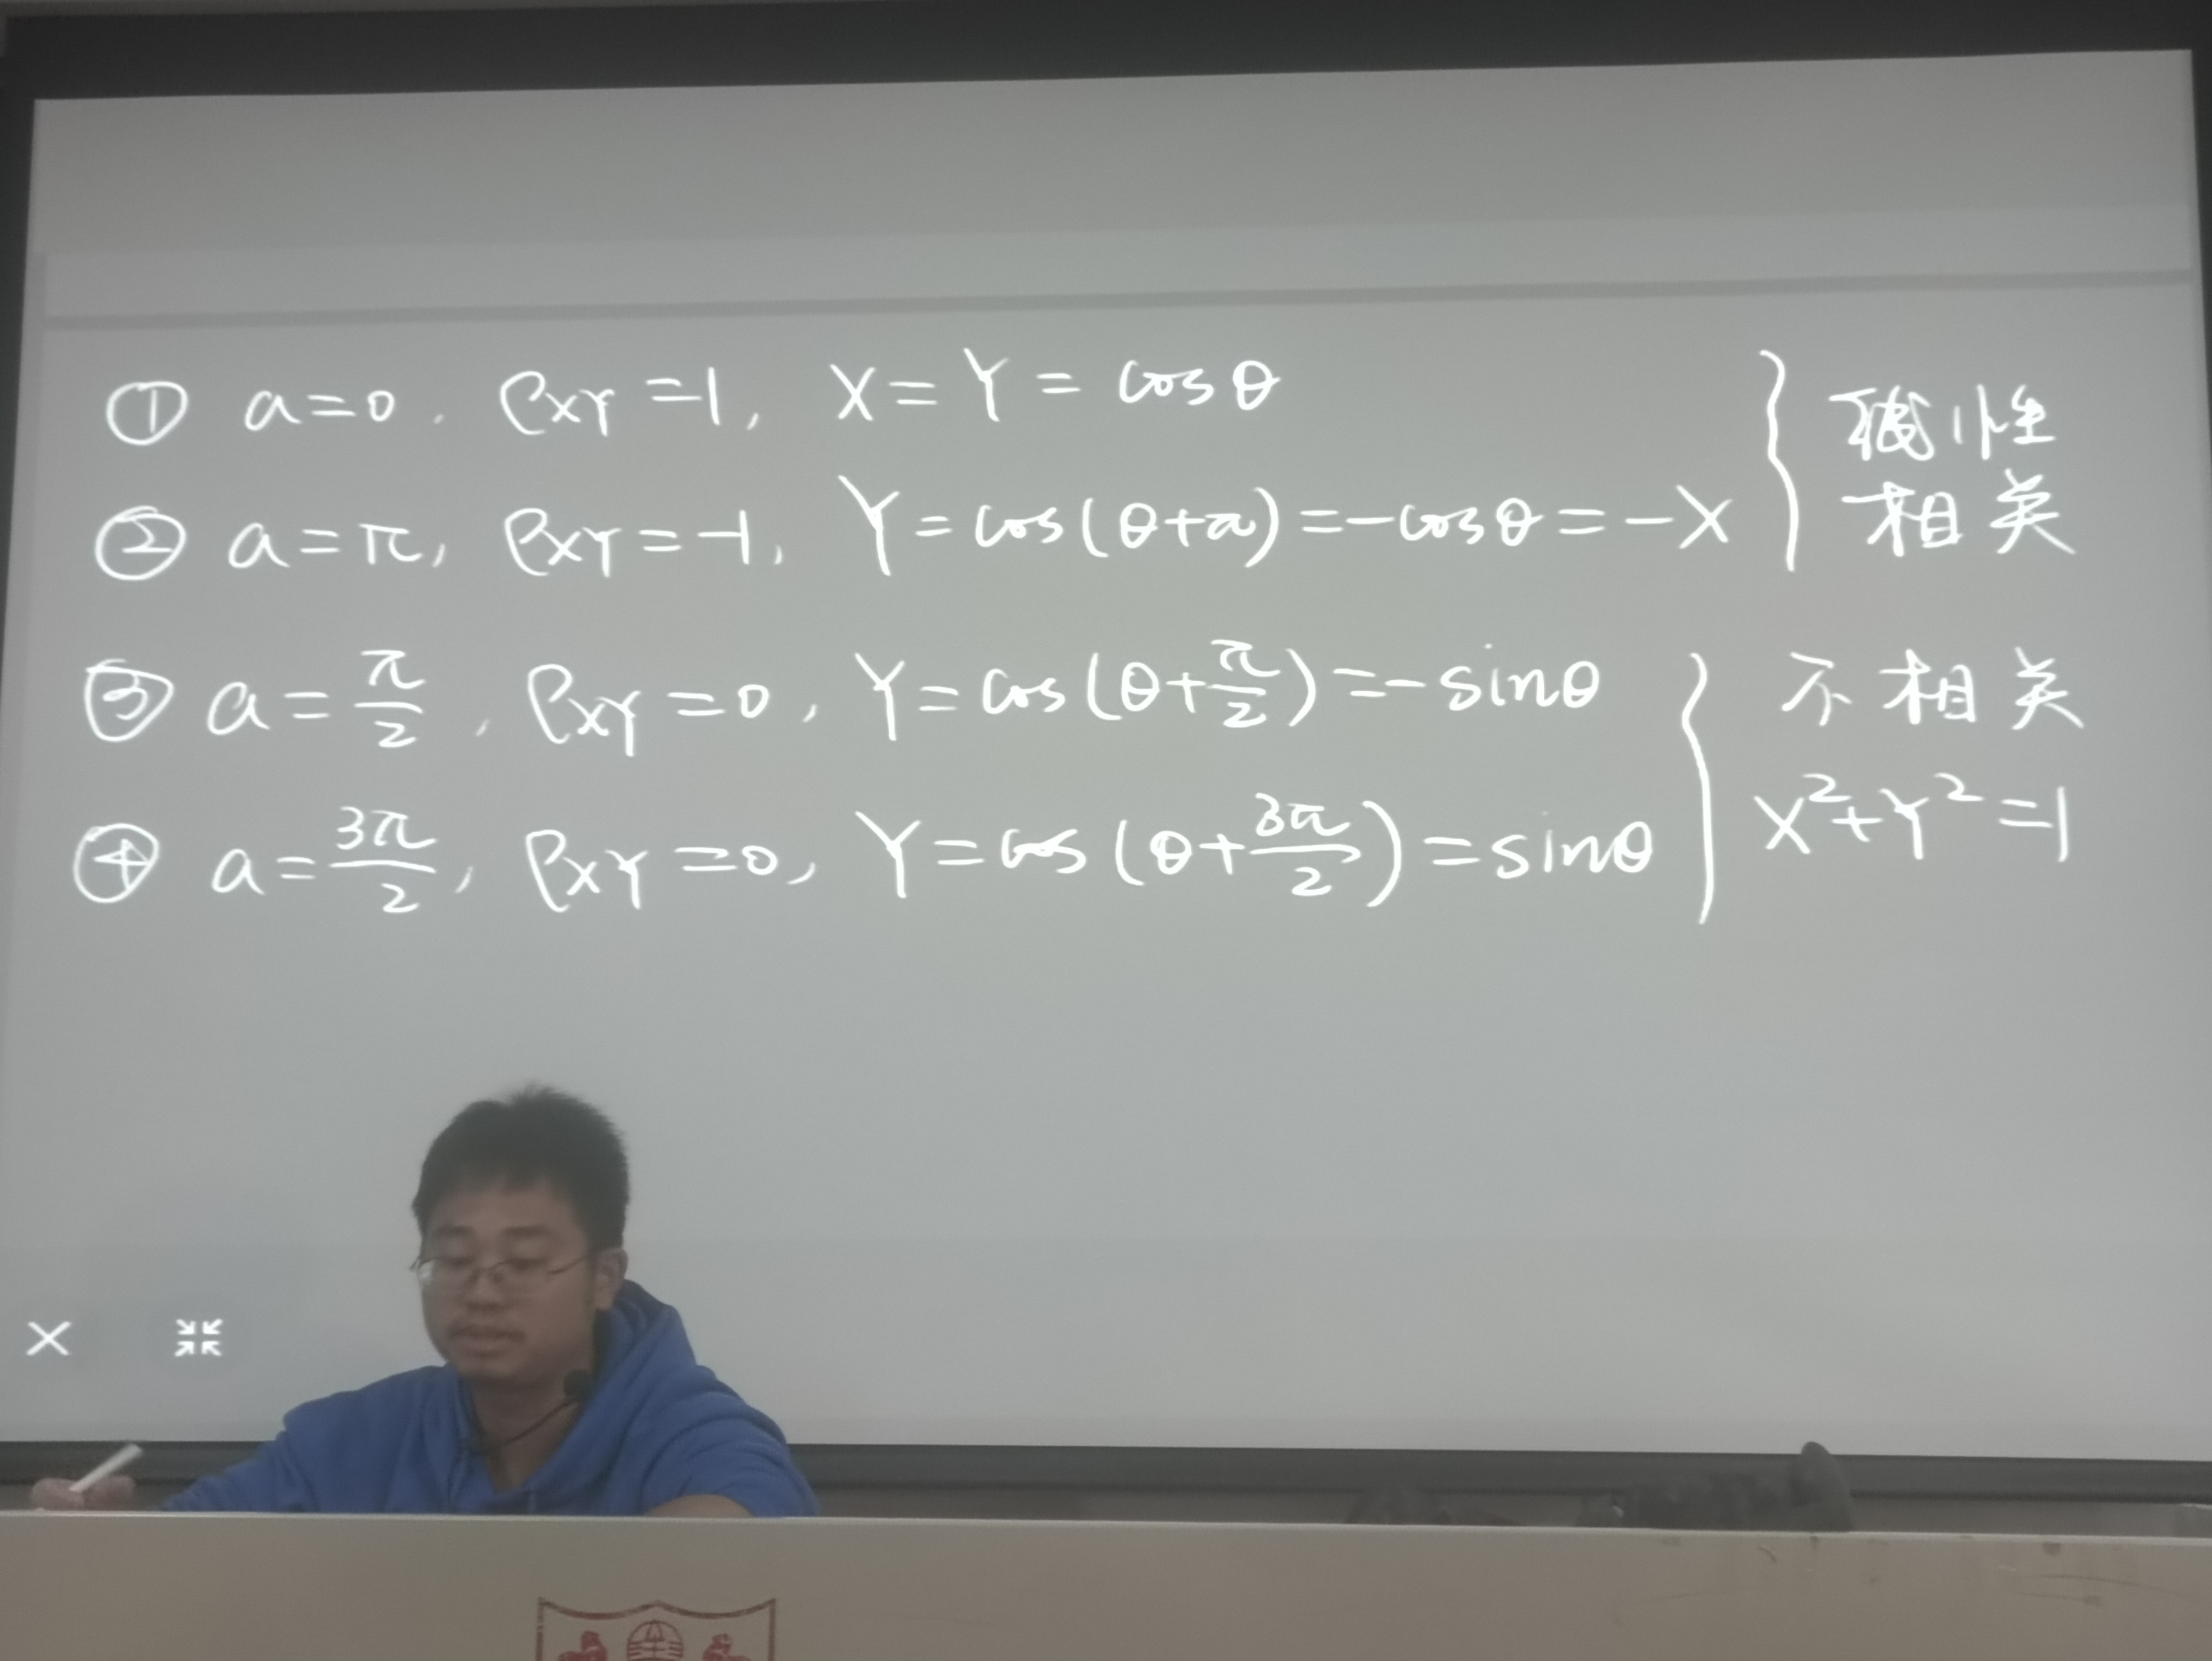 ① a=0, ρXY=1, X=Y=cosθ
② a=π, ρXY=-1, Y=cos(θ+π)=-cosθ=-X
线性
相关
③ a=π/2, ρXY=0, Y=cos(θ+π/2)=-sinθ
④ a=3π/2, ρXY=0, Y=cos(θ+3π/2)=sinθ
不相关
X²+Y²=1